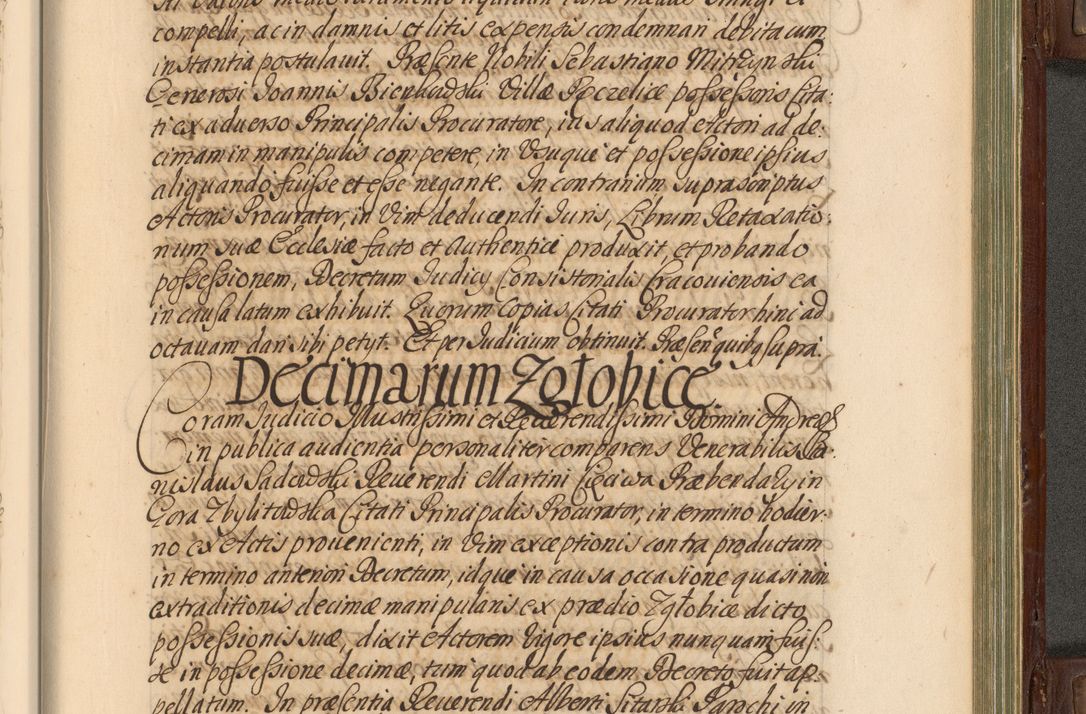 compelli, ac in damnis et litis expensis condemnari debita cum
instantia postulavit. Præsente Nobili Sebastiano
Generosi Joannis Villæ possessoris Cita:
ti ex adverso Principalis Procuratore, ius aliquod Actori ad de:
cimam in manipulis competere, in Usuque et possessione ipsius
aliquando fuisse et esse negante. In contrarium suprascriptus
Actoris Procurator, in Vim deducendi Juris, Librum Retaxatio:
num suæ Ecclesiæ facto et authentice produxit, et probando
possessionem, Decretum Judicij Consistorialis Cracoviensis ea
in causa latum exhibuit. Quorum Copias Citati Procurator hinc ad
octavam dari sibi petyt. Et per Judicium obtinuit. Præsen quibq supra.
Decimarum Zgłobice
Coram Judicio Illustrissimi et Reverendissimi Domini Andreæ
in publica audientia personaliter comparens Venerabilis Sta
nislaus Reverendi Martini Præbendarij in
Gora Zbylitowska Citati Principalis Procurator, in termino hodier:
no ex Actis provenienti, in Vim exceptionis contra productum
in termino anteriori Decretum, idque in causa occasione quasi non
extraditionis decimæ manipularis ex prædio Zgłobice dicto,
possessionis suæ, dixit Actorem Vigore ipsius nunquam fuis:
se in possessione decimæ, tum quod ab eodem Decreto fuit ap:
pellatum. In præsentia Reverendi Alberti Parochi in